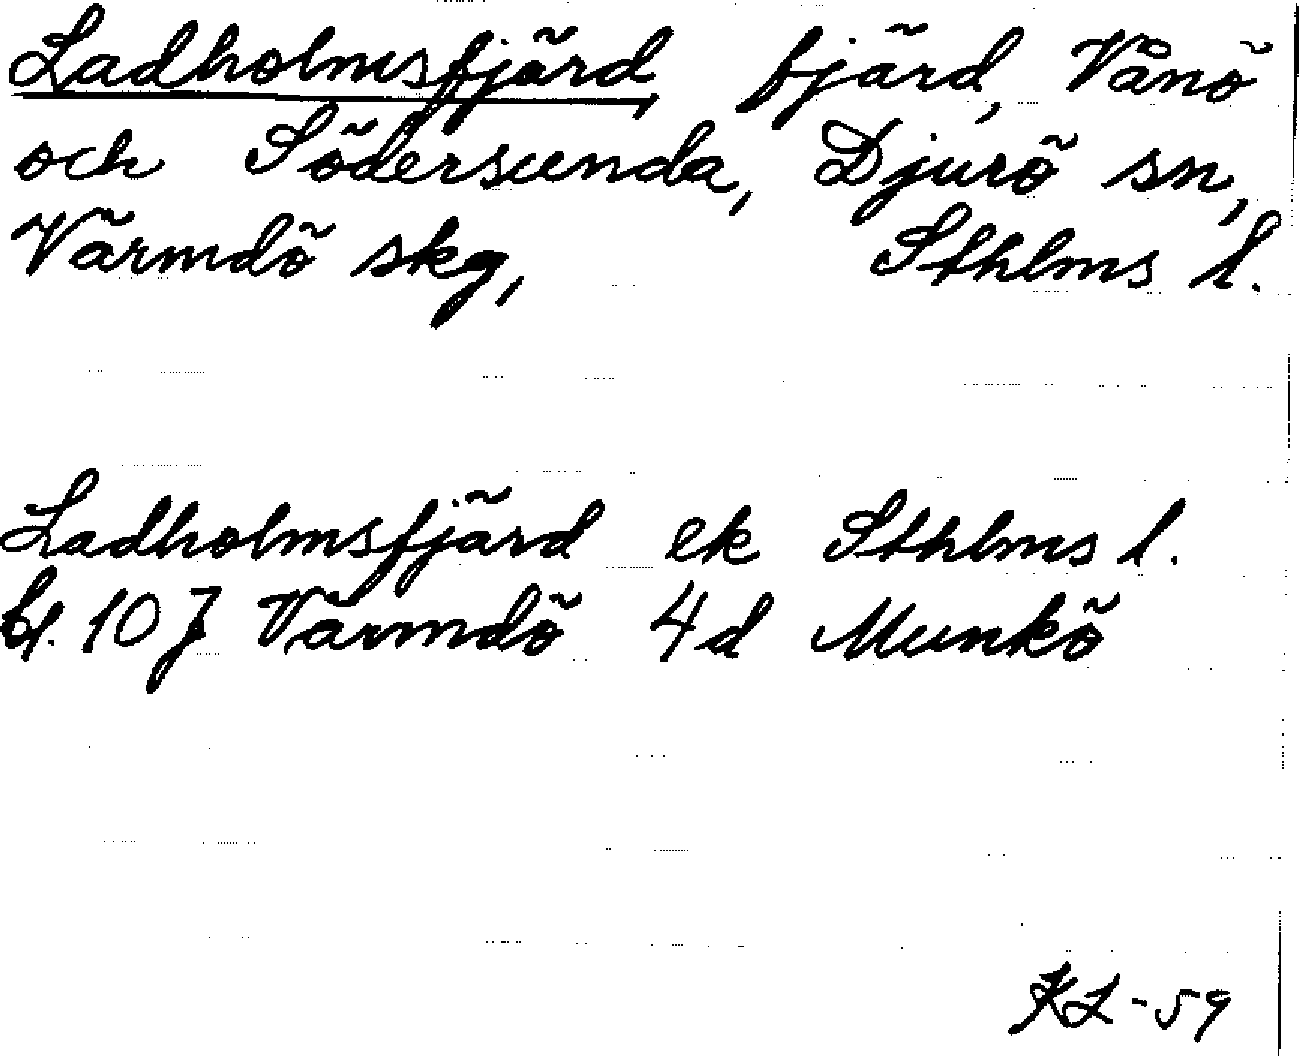 Ladholmsfjärd, fjärd, Vånö
och Södersunda, Djurö sn,
Värmdö skg, Sthlms l.
Ladholmsfjärd ek Sthlms l.
bl. 107 Värmdö 4d Munkö
KL-59